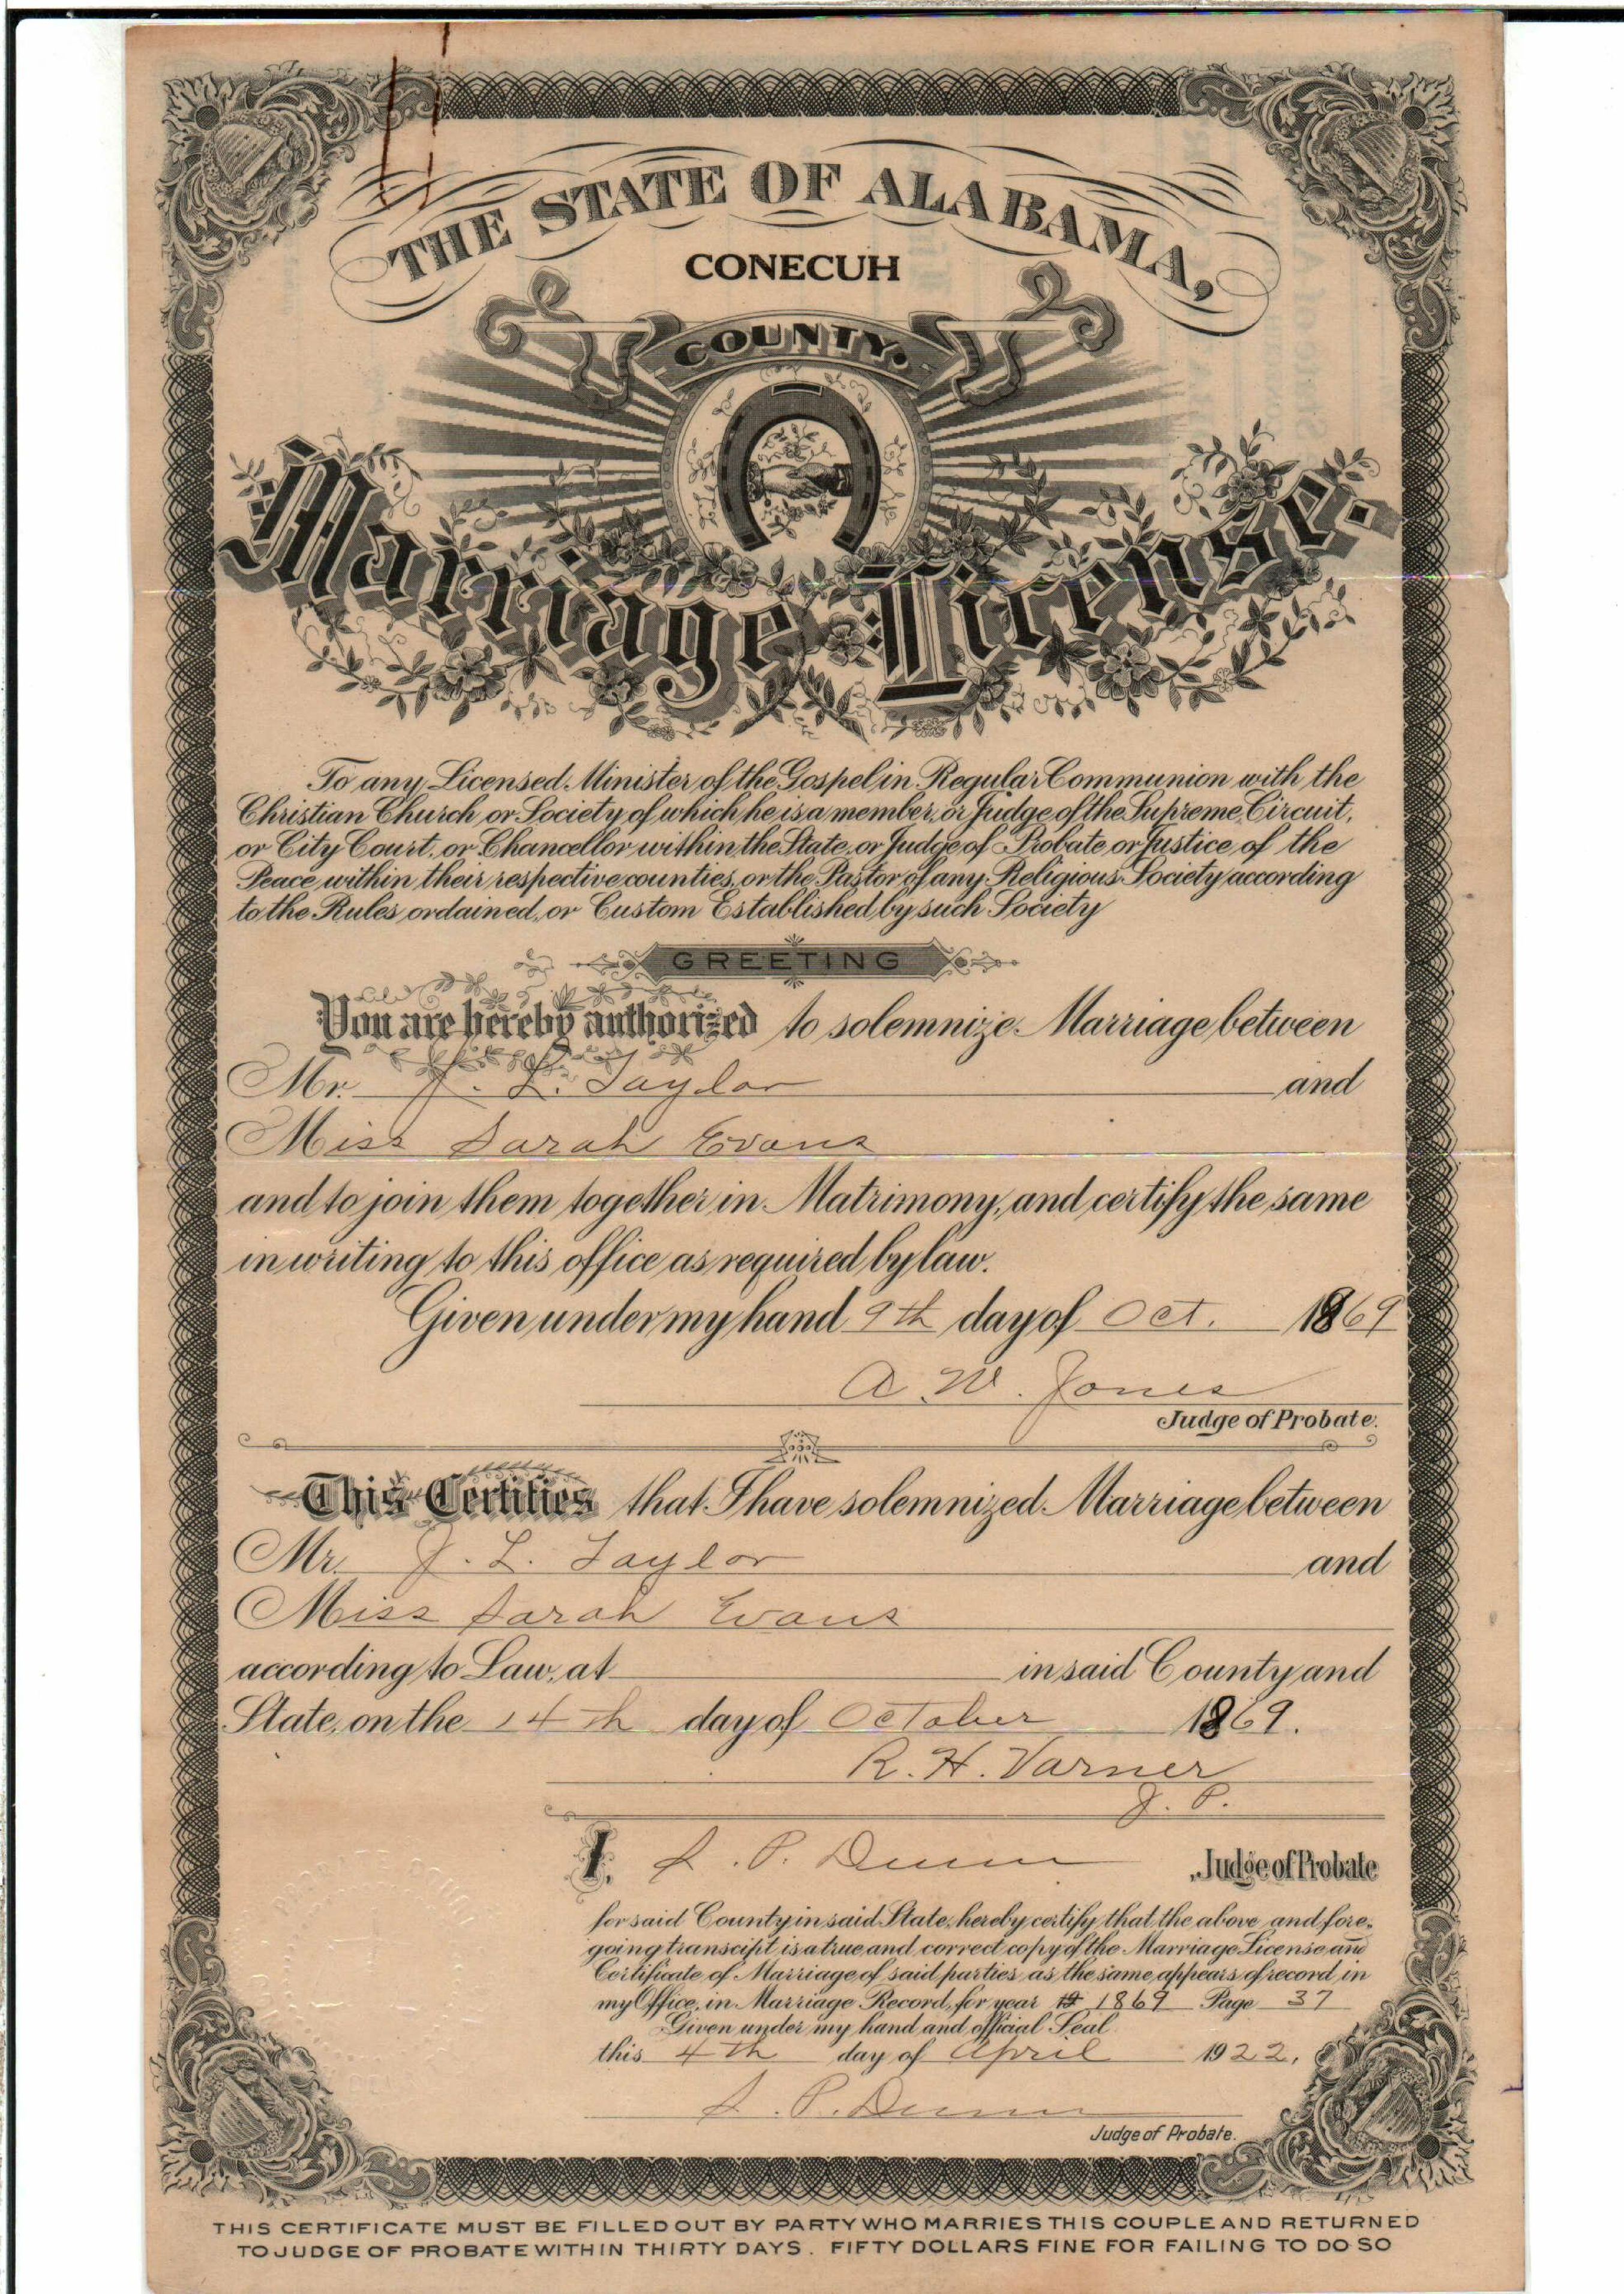 THE STATE OF ALABAMA,
CONECUH
COUNTY.
Marriage License.
To any Licensed Minister of the Gospel in Regular Communion with the
Christian Church or Society of which he is a member, or Judge of the Supreme, Circuit,
or City Court, or Chancellor within the State, or Judge of Probate or Justice of the
Peace within their respective counties, or the Pastor of any Religious Society according
to the Rules ordained, or Custom Established by such Society
GREETING
You are hereby authorized to solemnize Marriage between
Mr. J. L. Taylor and
Miss Sarah Evans
and to join them together in Matrimony, and certify the same
in writing to this office as required by law.
Given under my hand 9th day of Oct. 1869
A. W. Jones
Judge of Probate.
This Certifies that I have solemnized Marriage between
Mr. J. L. Taylor and
Miss Sarah Evans
according to Law, at in said County and
State, on the 14th day of October 1869.
R. H. Varner
J. P.
I, S. P. Dunn Judge of Probate
for said County in said State, hereby certify that the above and fore-
going transcipt is a true and correct copy of the Marriage License and
Certificate of Marriage of said parties as the same appears of record in
my Office, in Marriage Record, for year 19 1869 Page 37
Given under my hand and official Seal
this 4th day of April 1922.
S. P. Dunn
Judge of Probate.
THIS CERTIFICATE MUST BE FILLED OUT BY PARTY WHO MARRIES THIS COUPLE AND RETURNED
TO JUDGE OF PROBATE WITHIN THIRTY DAYS. FIFTY DOLLARS FINE FOR FAILING TO DO SO